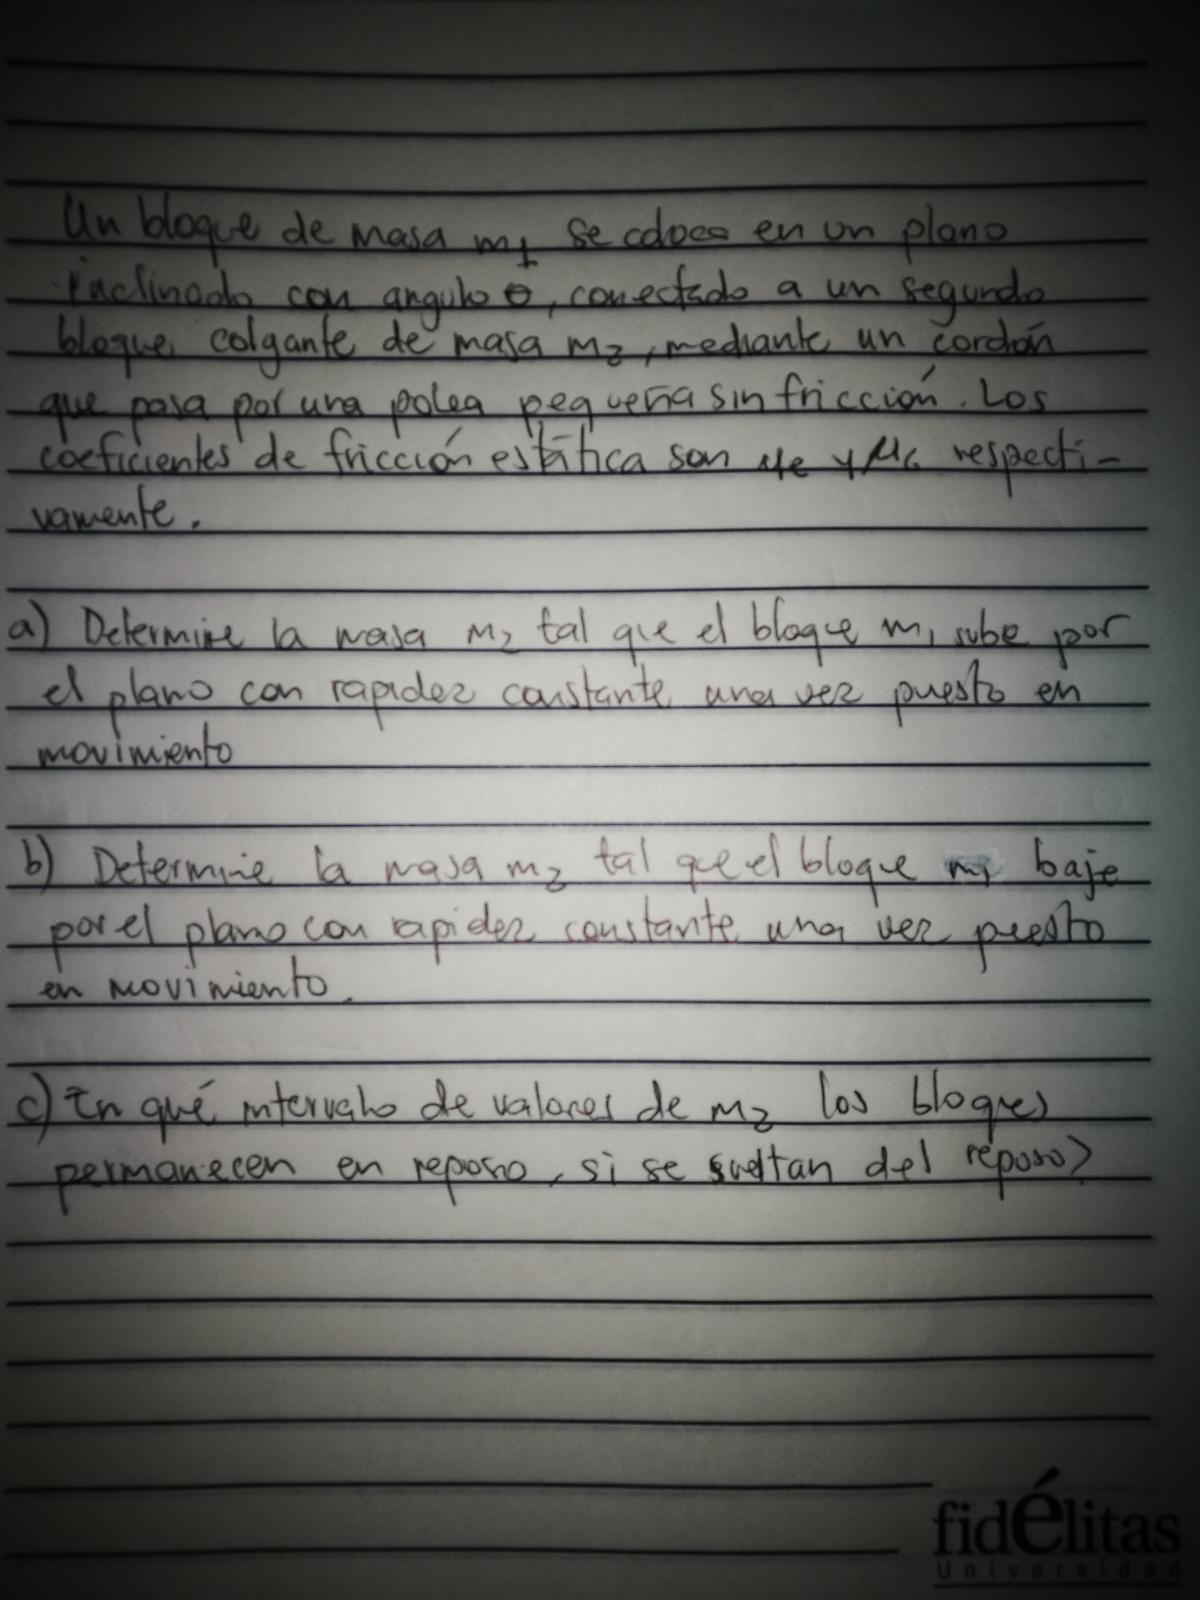 Un bloque de masa m1 se coloca en un plano
inclinado con angulo θ, conectado a un segundo
bloque colgante de masa m2, mediante un cordón
que pasa por una polea pequeña sin fricción. Los
coeficientes de fricción estática son μe y μc respecti-
vamente.
a) Determine la masa m2 tal que el bloque m1 sube por
el plano con rapidez constante una vez puesto en
movimiento
b) Determine la masa m2 tal que el bloque m1 baje
por el plano con rapidez constante una vez puesto
en movimiento.
c) En qué intervalo de valores de m2 los bloques
permanecen en reposo, si se sueltan del reposo?
fidélitas
Universidad